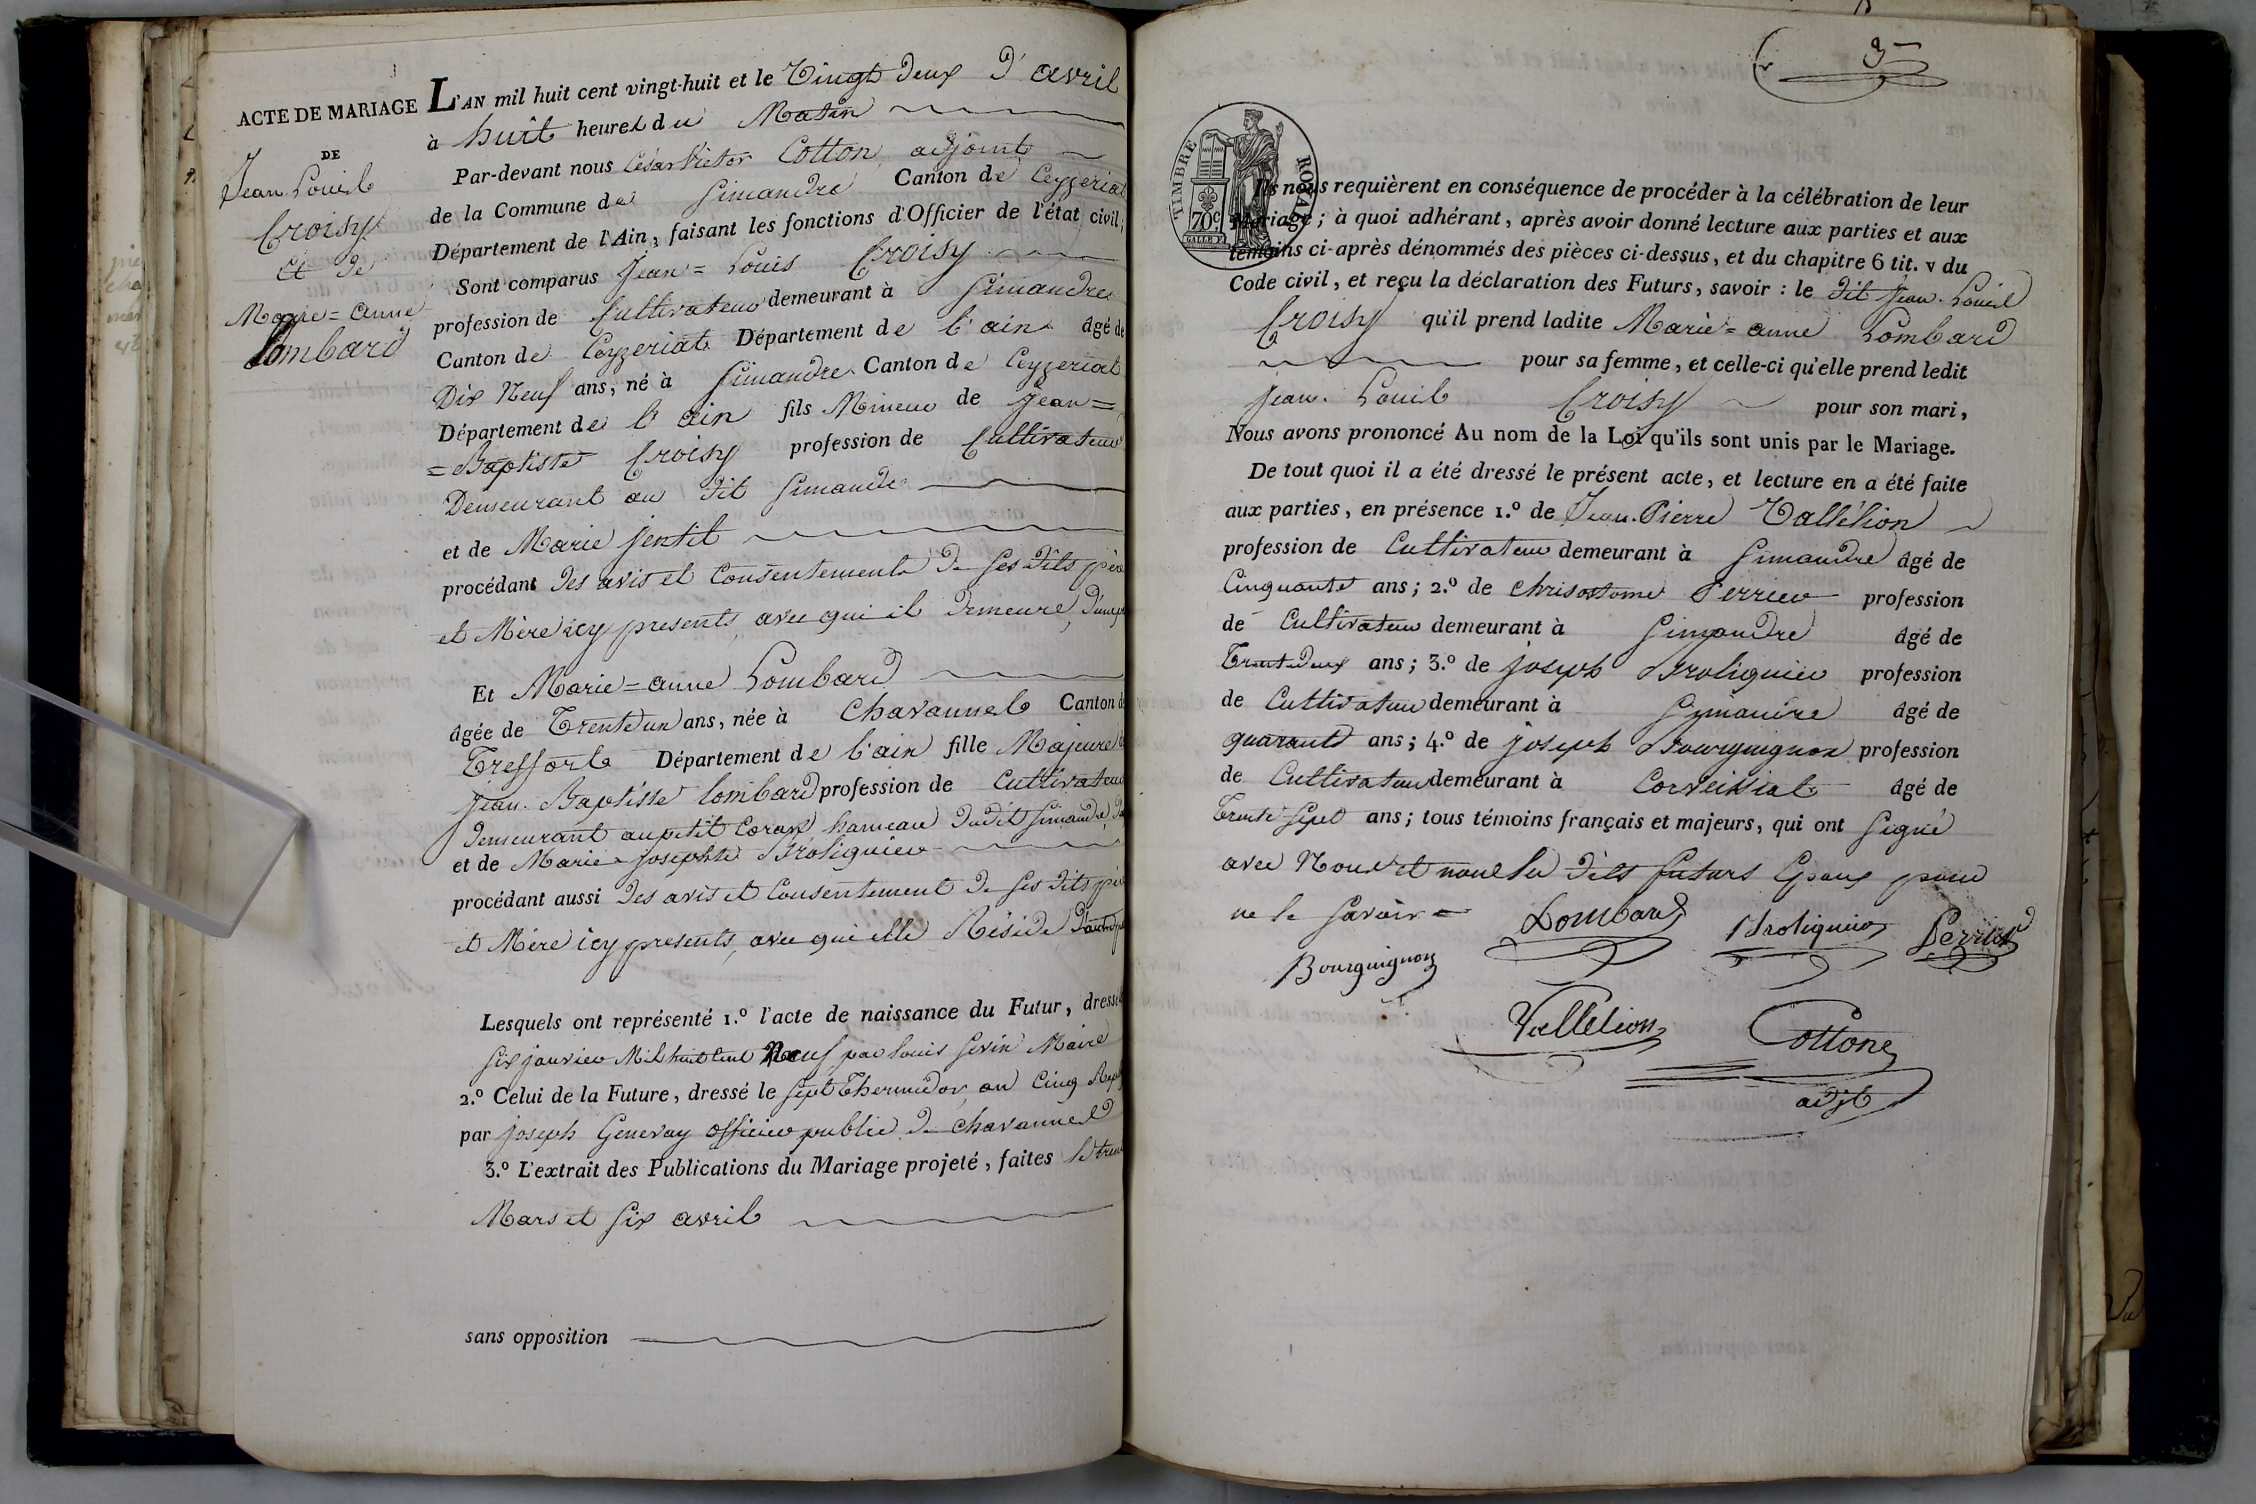 ACTE DE MARIAGE
DE
Jean Louis
Croisy
et de
Marie=anne
Lombard
L'AN mil huit cent vingt-huit et le Vingt deux d'avril
à huit heures du Matin
Par-devant nous César Victor Cotton adjoint
de la Commune de Simandre Canton de Ceyzeriat
Département de l'Ain, faisant les fonctions d'Officier de l'état civil;
Sont comparus Jean=Louis Croisy
profession de Cultivateur demeurant à Simandre
Canton de Ceyzeriat Département de l'ain âgé de
Dix Neuf ans, né à Simandre Canton de Ceyzeriat
Département de l'ain fils Mineur de Jean=
=Baptiste Croisy profession de Cultivateur
Demeurant au dit Simandre
et de Marie jentil
procédant des avis et Consentements de ses dits père
et Mère icy presents, avec qui il demeure, d'une part
Et Marie=anne Lombard
âgée de Trente un ans, née à Chavannes Canton de
Treffort Département de l'ain fille Majeure de
Jean-Baptiste lombard profession de Cultivateur
demeurant au petit Coran hameau dudit Simandre
et de Marie josephte Broliquier
procédant aussi des avis et Consentement de ses dits père
et Mère icy presents, avec qui elle Réside D'autre part
Lesquels ont représenté 1.° l'acte de naissance du Futur, dressé le
six janvier Mil huit Cent Neuf par Louis Sevin Maire
2.° Celui de la Future, dressé le sept Thermidor an Cinq
par joseph Genevay officier public de Chavannes
3.° L'extrait des Publications du Mariage projeté, faites le trente
Mars et six avril
sans opposition
3
TIMBRE ROYAL
70c
Ils nous requièrent en conséquence de procéder à la célébration de leur
Mariage; à quoi adhérant, après avoir donné lecture aux parties et aux
témoins ci-après dénommés des pièces ci-dessus, et du chapitre 6 tit. v du
Code civil, et reçu la déclaration des Futurs, savoir : le dit Jean-Louis
Croisy qu'il prend ladite Marie=anne Lombard
pour sa femme, et celle-ci qu'elle prend ledit
Jean-Louis Croisy pour son mari,
Nous avons prononcé Au nom de la Loi qu'ils sont unis par le Mariage.
De tout quoi il a été dressé le présent acte, et lecture en a été faite
aux parties, en présence 1.° de Jean-Pierre Vallélion
profession de Cultivateur demeurant à Simandre âgé de
Cinquante ans; 2.° de Chrisostome Perrier profession
de Cultivateur demeurant à Simandre âgé de
Trente deux ans; 3.° de joseph Broliquier profession
de Cultivateur demeurant à Simandre âgé de
quarante ans; 4.° de joseph Bourguignon profession
de Cultivateur demeurant à Corveissiat âgé de
Trente sept ans; tous témoins français et majeurs, qui ont signé
avec Nous et non les dits futurs Epoux pour
ne le savoir =
Lombard Broliquier Perrier
Bourguignon
Vallelion Cotton
adjt